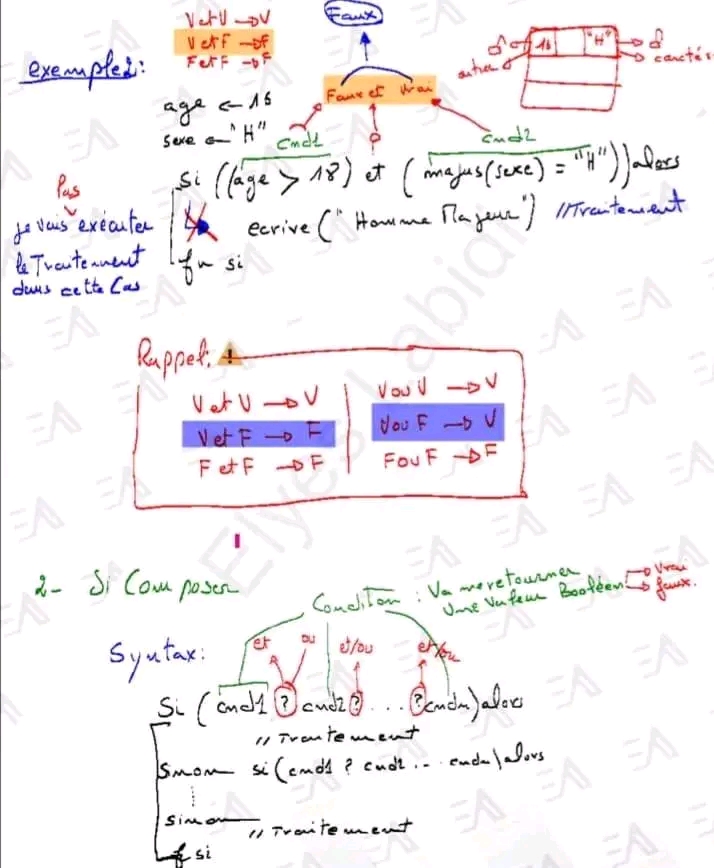 V et V → V
V et F → F
F et F → F
exemple2:
Faux
Faux et Vrai
16
"H"
caractés
age ← 16
sexe ← "H"
cnd1
cnd2
Si ((age > 18) et (majus(sexe) = "H")) alors
ecrire (" Homme Majeur") // Traitement
fin si
Pas
je vais exécuter
le Traitement
dans cette Cas
Rappel:
V et V → V
V et F → F
F et F → F
V ou V → V
V ou F → V
F ou F → F
Elyes Labidi
2- Si Composer
Condition : Va me retourner
Une Valeur Booléen
Vrai
faux.
Syntax:
et
ou
et/ou
et/ou
Si (cnd1 ? cnd2 ? ... ? cndn) alors
// Traitement
Sinon si (cnd1 ? cnd2 ... cndn) alors
sinon
// Traitement
f si